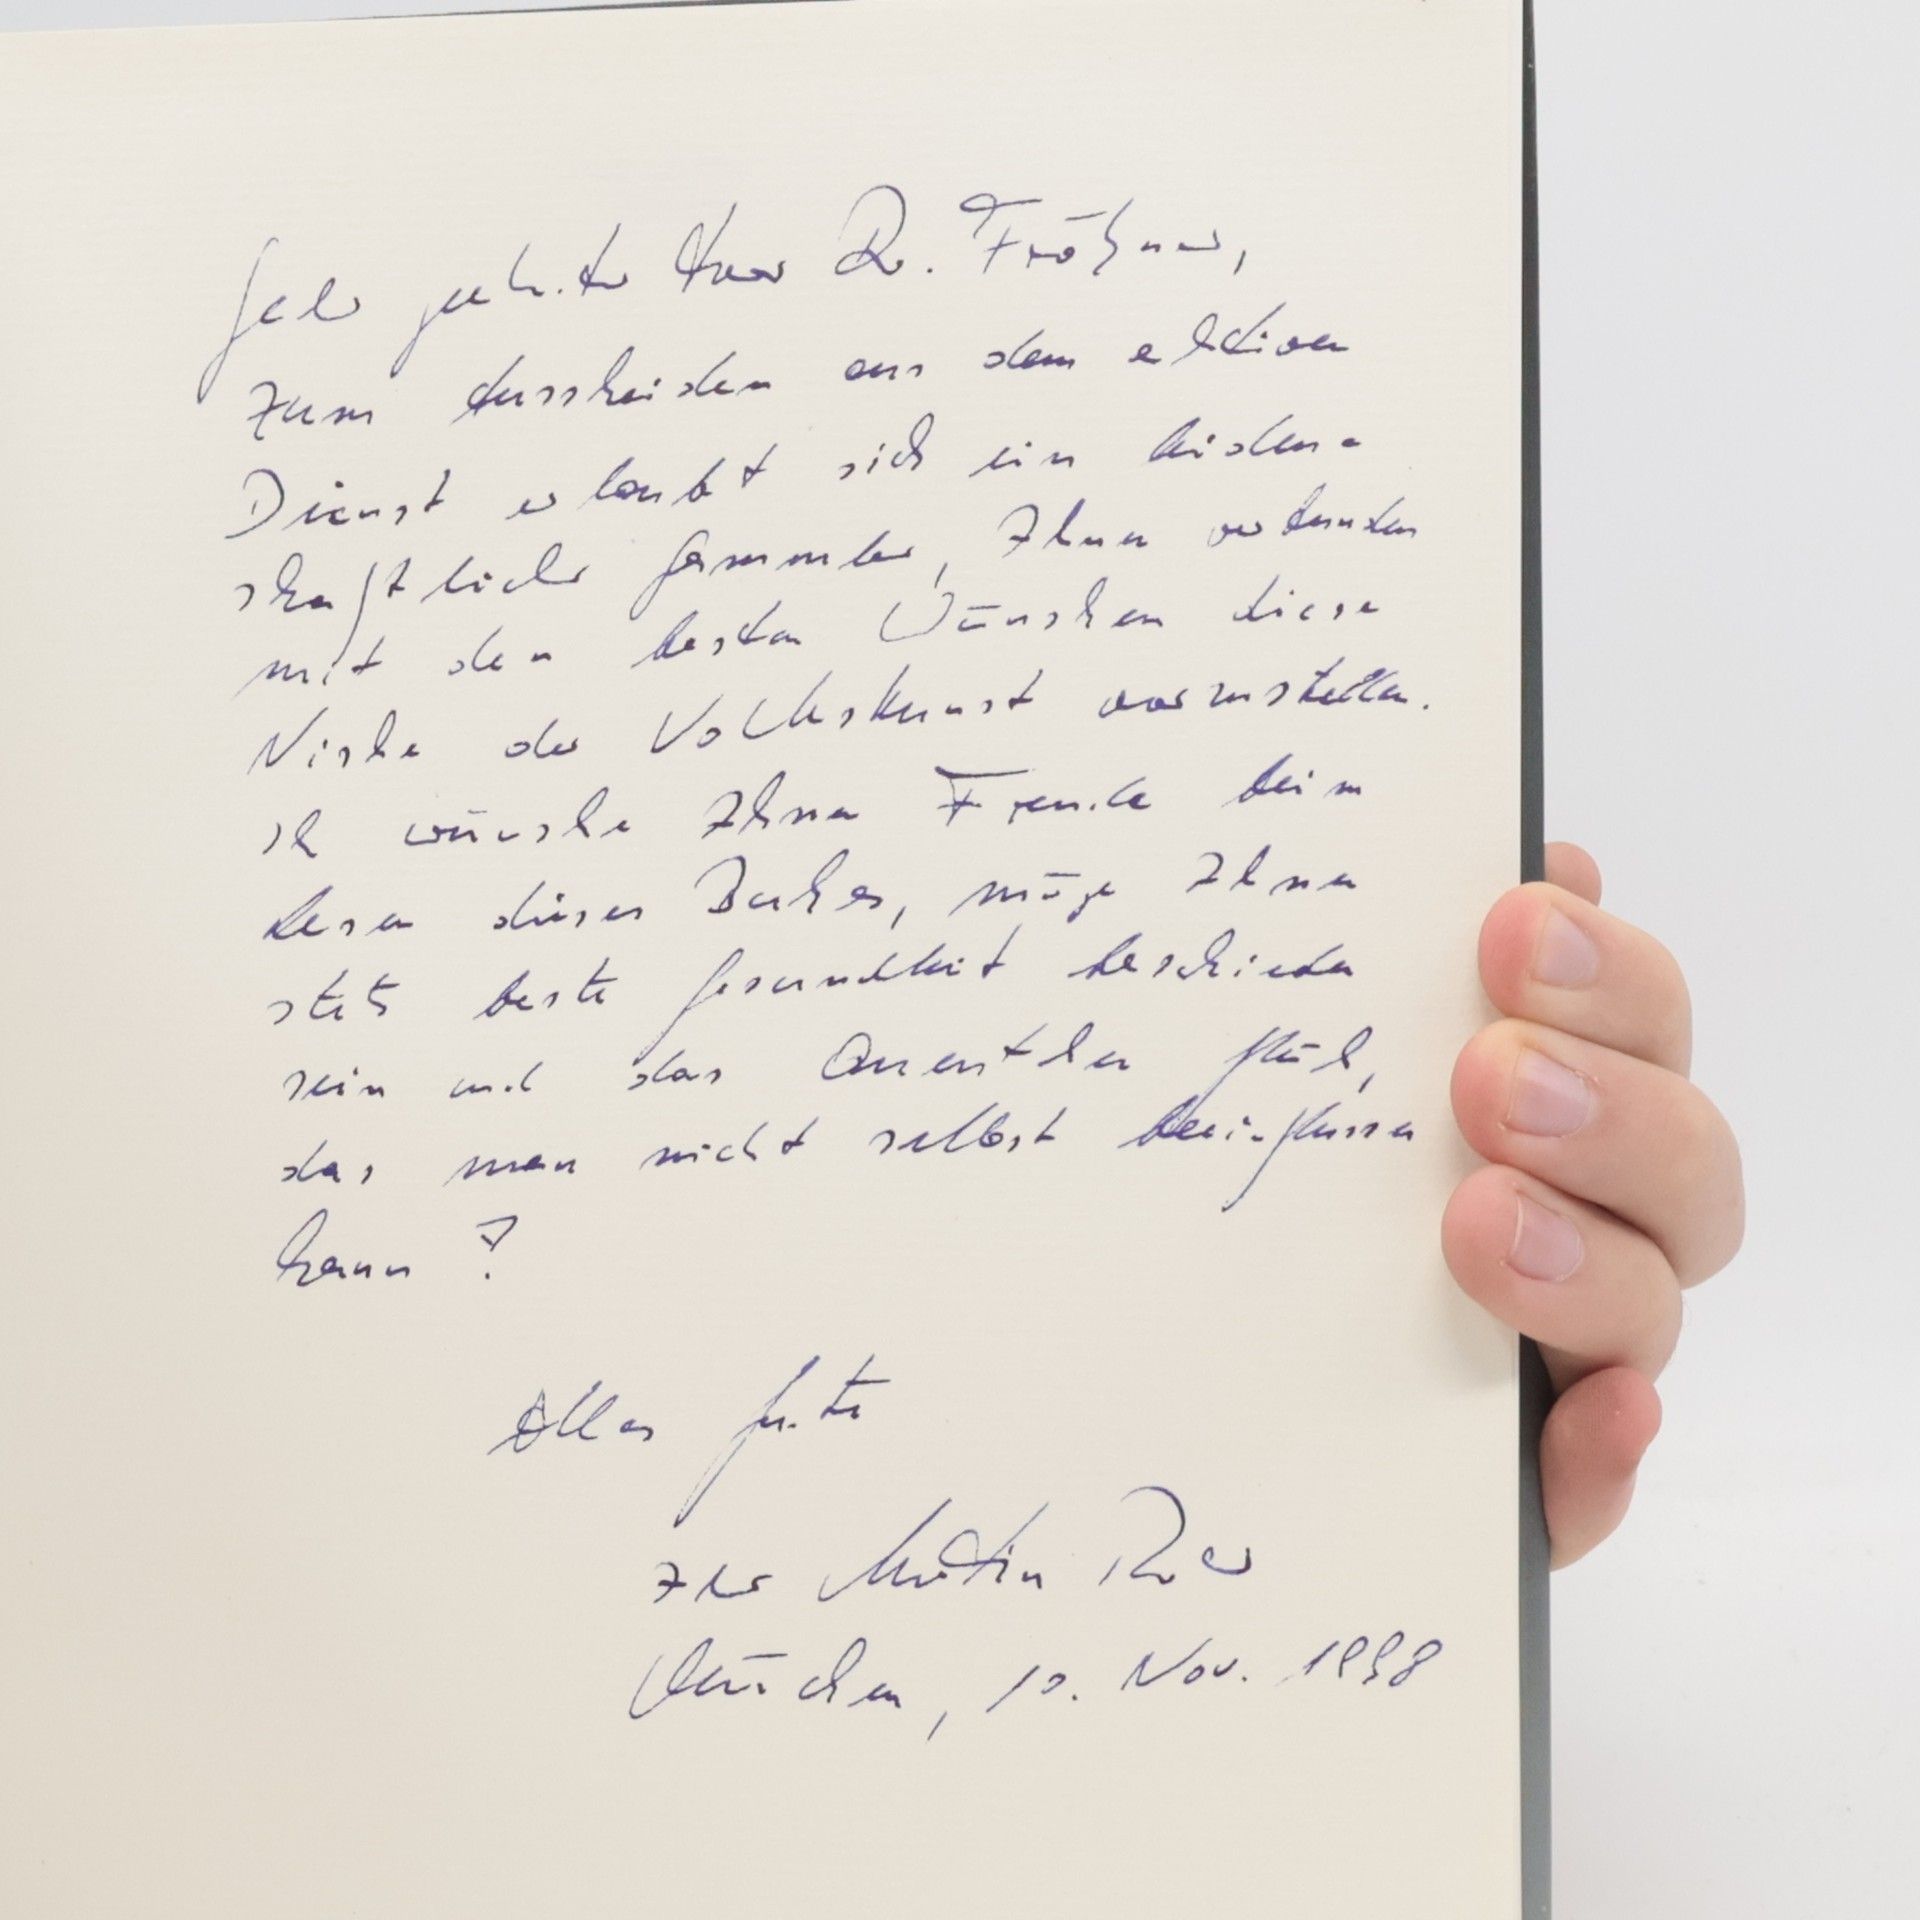 Sehr geehrter Herr Dr. Fröhner,
zum Ausscheiden aus dem aktiven
Dienst erlaubt sich ein leiden-
schaftlicher Sammler, Ihnen verbunden
mit den besten Wünschen diese
Nische der Volkskunst vorzustellen.
Ich wünsche Ihnen Freude beim
Lesen dieses Buches, möge Ihnen
stets beste Gesundheit beschieden
sein und das Quentchen Glück,
das man nicht selbst beeinflussen
kann!
Alles Gute
Ihr Martin
München, 10. Nov. 1998